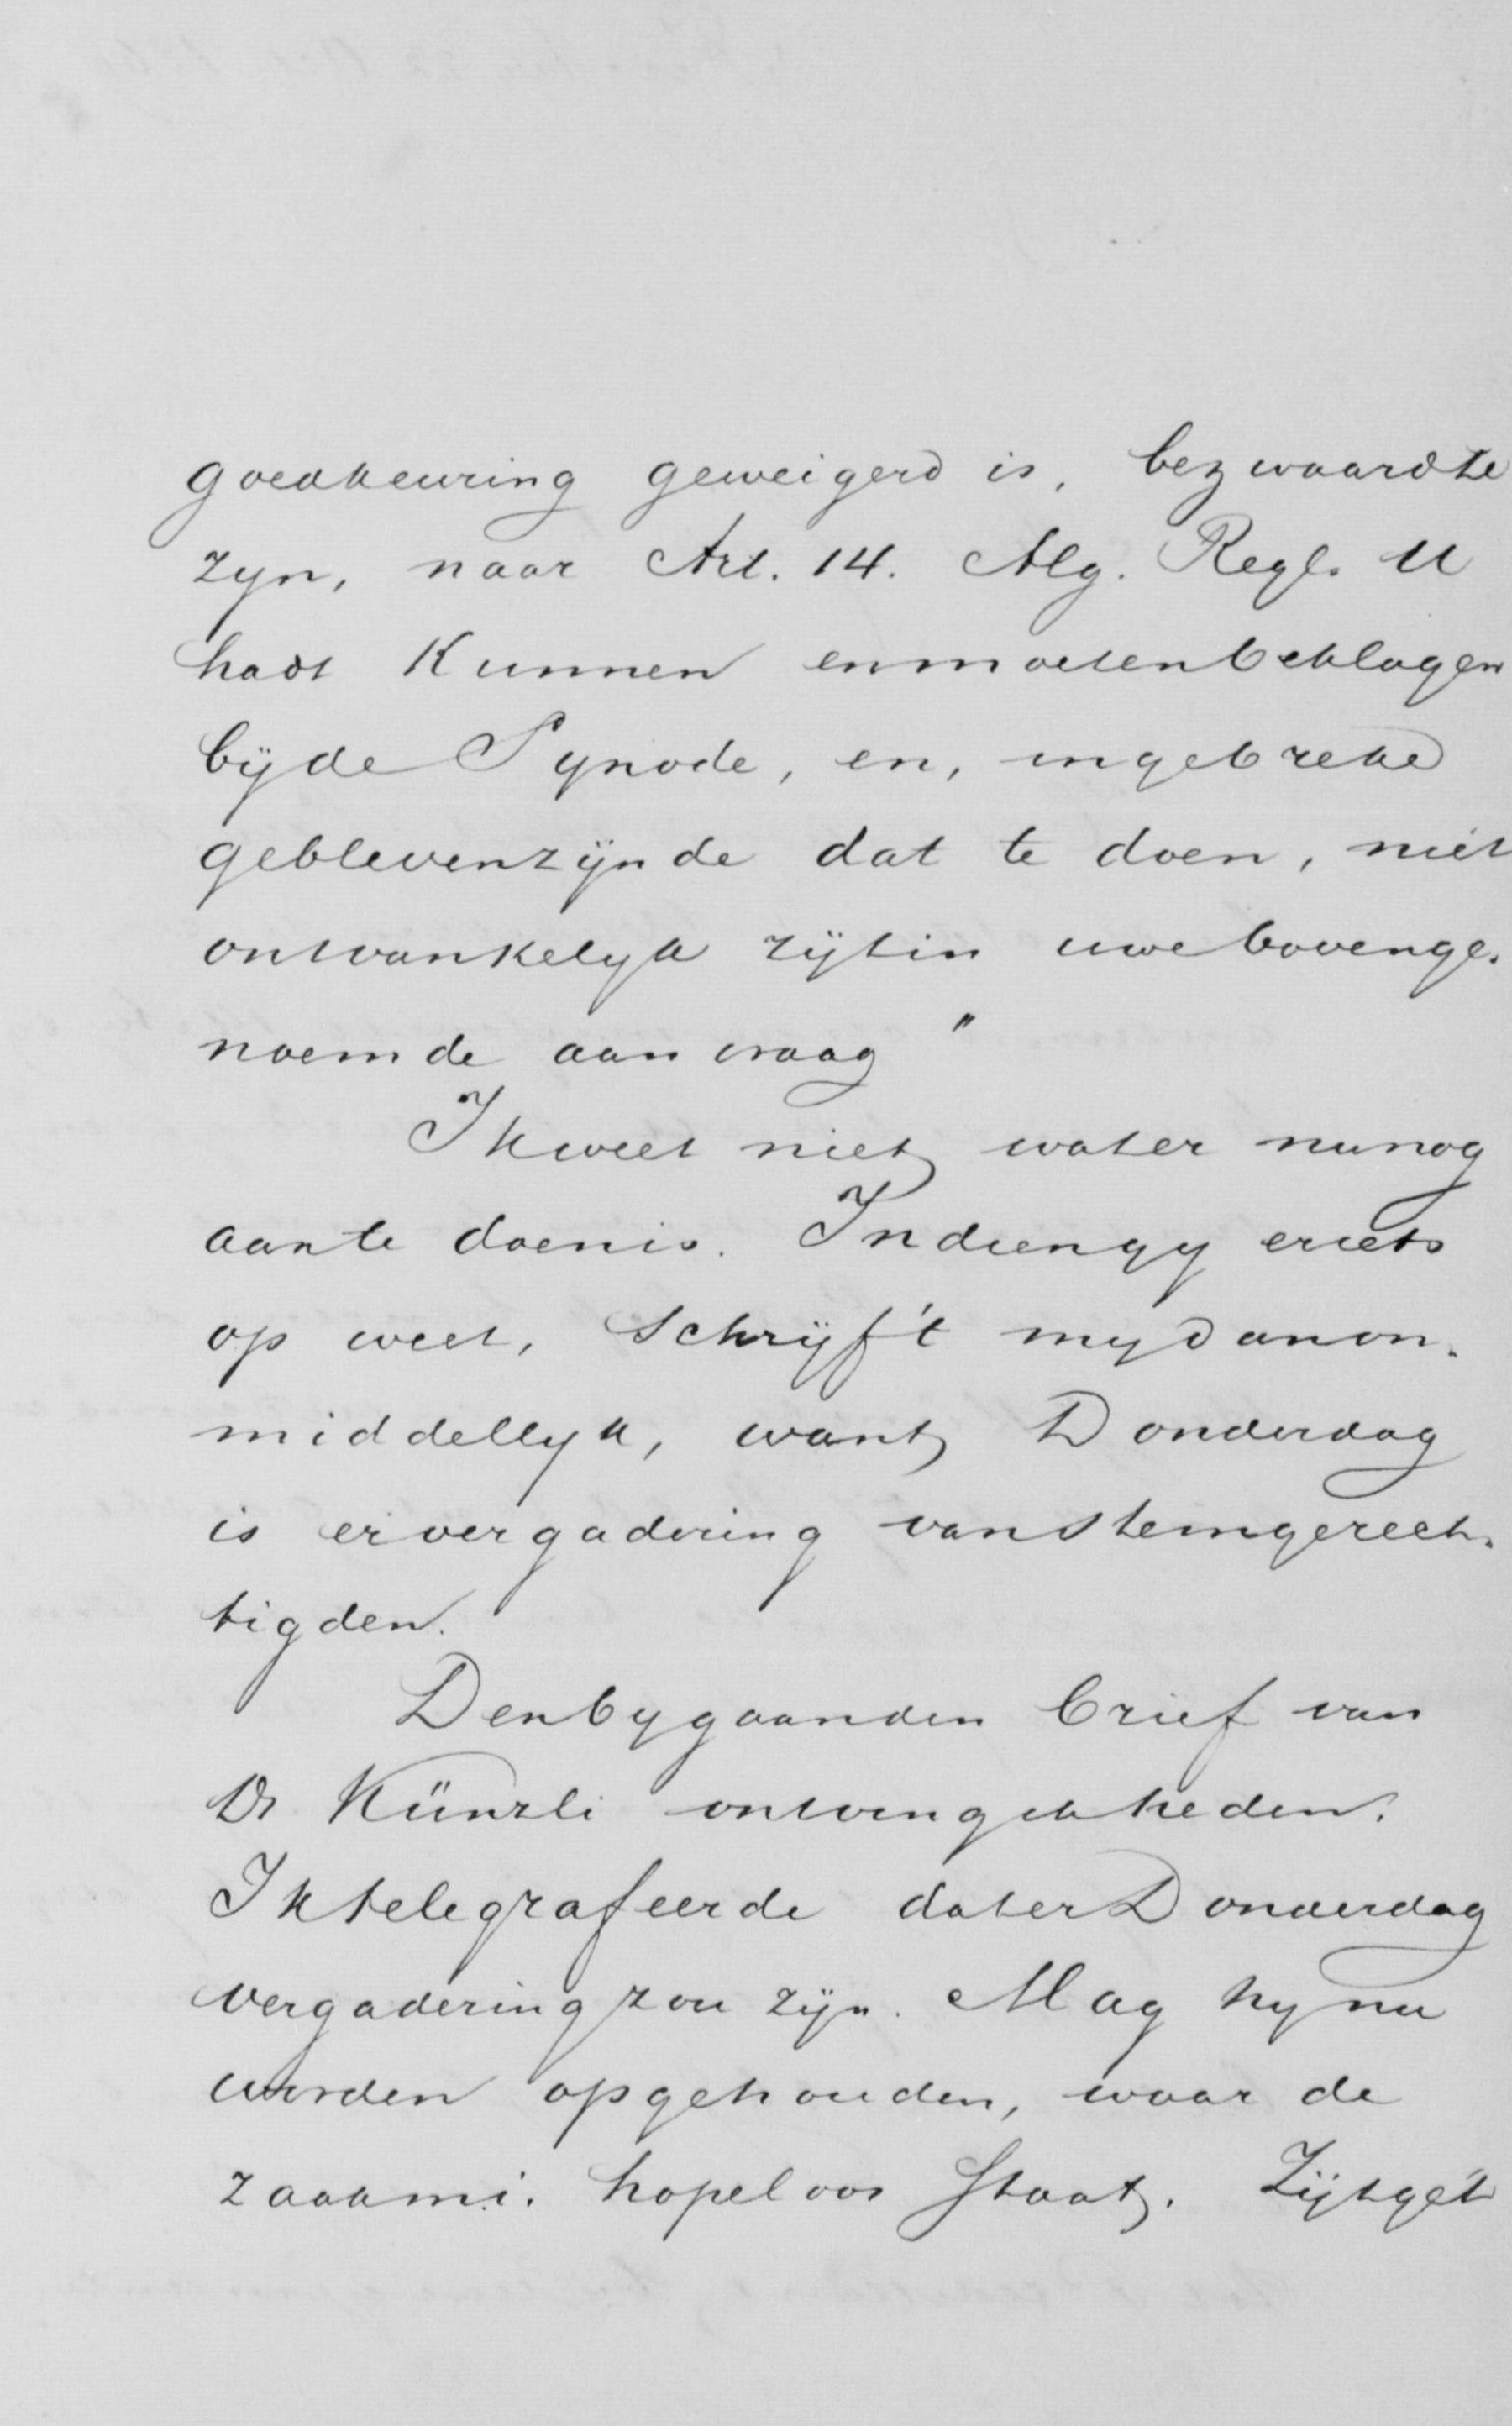 goedkeuring geweigerd is, bezwaard te
zyn, naar Art. 14. Alg. Regl. U
hadt Kunnen en moeten beklagen
bij de Synode, en, in gebreke
gebleven zijnde dat te doen, niet
ontvankelyk zijt in uwe bovenge-
noemde aanvraag"
Ik weet niet wat er nu nog
aan te doen is. Indien gy er iets
op weet, schrijf 't my dan on-
middellyk, want Donderdag
is er vergadering van stemgerech-
tigden.
Den bygaanden brief van
Ds Künzli ontving ik heden.
Ik telegrafeerde dat er Donderdag
vergadering zou zijn. Mag hy nu
worden opgehouden, waar de
zaak m.i. hopeloos staat. Zijt ge 't